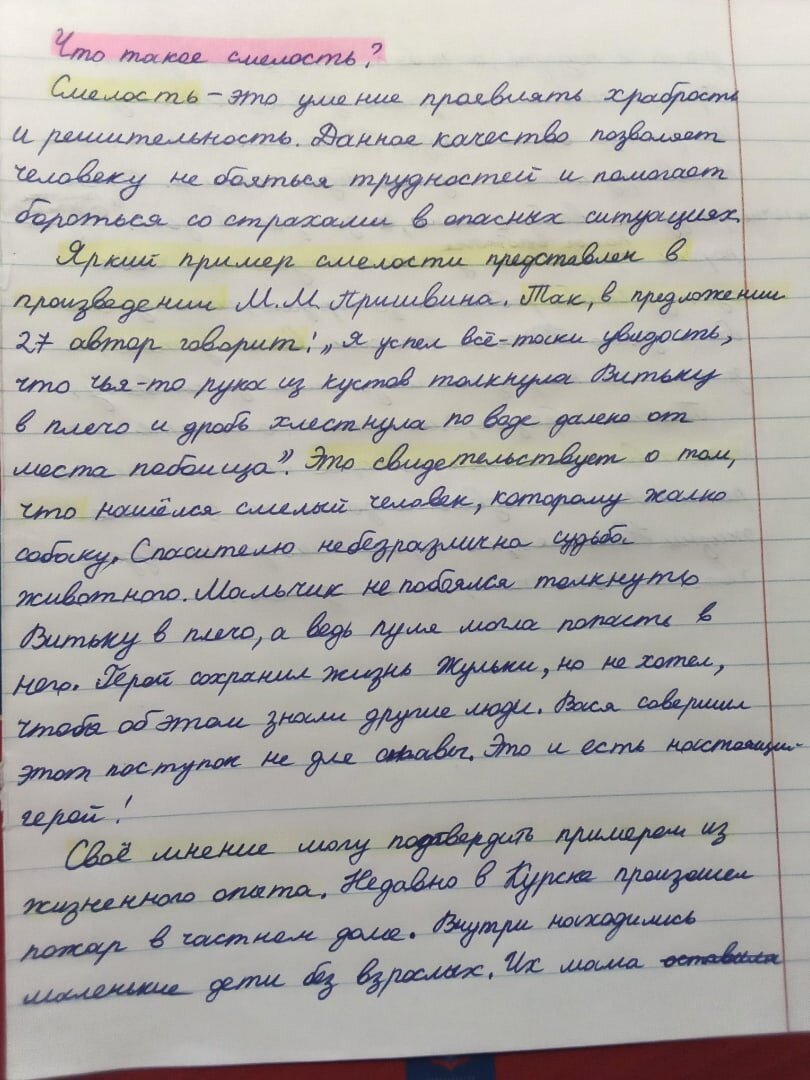 Что такое смелость?
Смелость – это умение проевлять храбрость
и решительность. Данное качество позволяет
человеку не бояться трудностей и помогает
бороться со страхами в опасных ситуациях.
Яркий пример смелости представлен в
произведении М.М. Пришвина. Так, в предложении
27 автор говорит: „Я успел всё-таки увидость,
что чья-то рука из кустов толкнула Витьку
в плечо и дробь хлестнула по воде далеко от
места побоища". Это свидетельствует о том,
что нашёлся смелый человек, которому жалко
собаку. Спасителю небезразлична судьба
животного. Мальчик не побоялся толкнуть
Витьку в плечо, а ведь пуля могла попасть в
него. Герой сохранил жизнь Жульки, но не хотел,
чтобы об этом знали другие люди. Вася совершил
этот поступок не для славы. Это и есть настоящий
герой!
Своё мнение могу подтвердить примером из
жизненного опыта. Недавно в Курске произошел
пожар в частном доме. Внутри находились
маленькие дети без взрослых. Их мама оставила